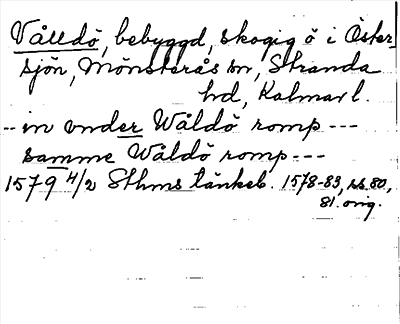 Vålldö, bebyggd, skogig ö i Öster-
sjön, Mönsterås sn, Stranda
hd, Kalmar l.
-- in vnder Wåldö romp ---
samme Wåldö romp ---
1579 4/2 Sthms tänkeb. 1578-83, ss. 80,
81. orig.